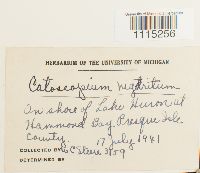 1115256
HERBARIUM OF THE UNIVERSITY OF MICHIGAN
Catoscopium nigritum
On shore of Lake Huron at
Hammond Bay Presque Isle
County. 17 July 1941
COLLECTED BY W C Steere
DETERMINED BY